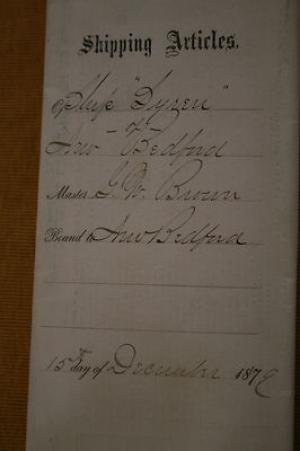 Shipping Articles.
Ship "Syren"
of
New Bedford
Master G. W. Brown
Bound to New Bedford
15th day of December 1879